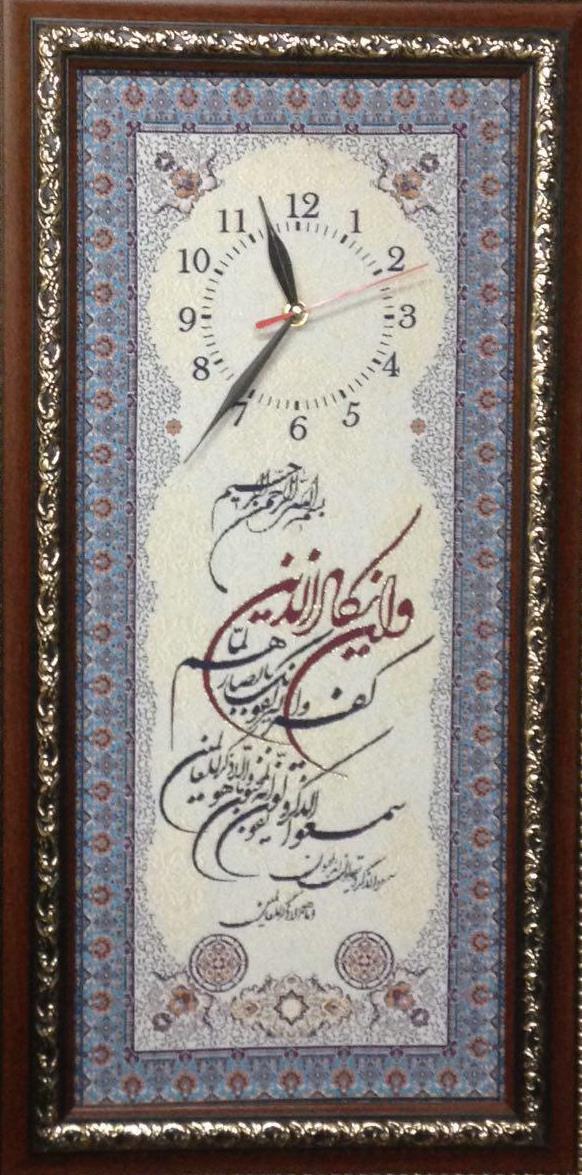 12
11 1
10 2
9 3
8 4
7 5
6
بسم الله الرحمن الرحیم
وان یکاد الذین
کفروا لیزلقونک بابصارهم لما
سمعوا الذکر و یقولون انه لمجنون و ما هو الا ذکر للعالمین